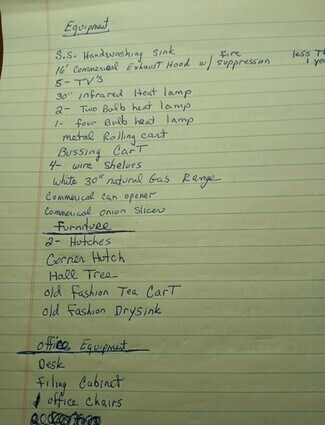 Equipment
S.S. Handwashing sink
16' Commerical Exhaust Hood w/ fire suppression less Th 1 yea
5 - TV's
30" infrared Heat lamp
2 - Two Bulb heat lamp
1 - four Bulb heat lamp
metal Rolling cart
Bussing CarT
4 - wire Shelves
White 30" natural Gas Range
Commerical can opener
Commerical onion Slicer
Furniture
2 - Hutches
Corner Hutch
Hall Tree
old Fashion Tea CarT
old Fashion Drysink
office Equipment
Desk
filing Cabinet
office Chairs